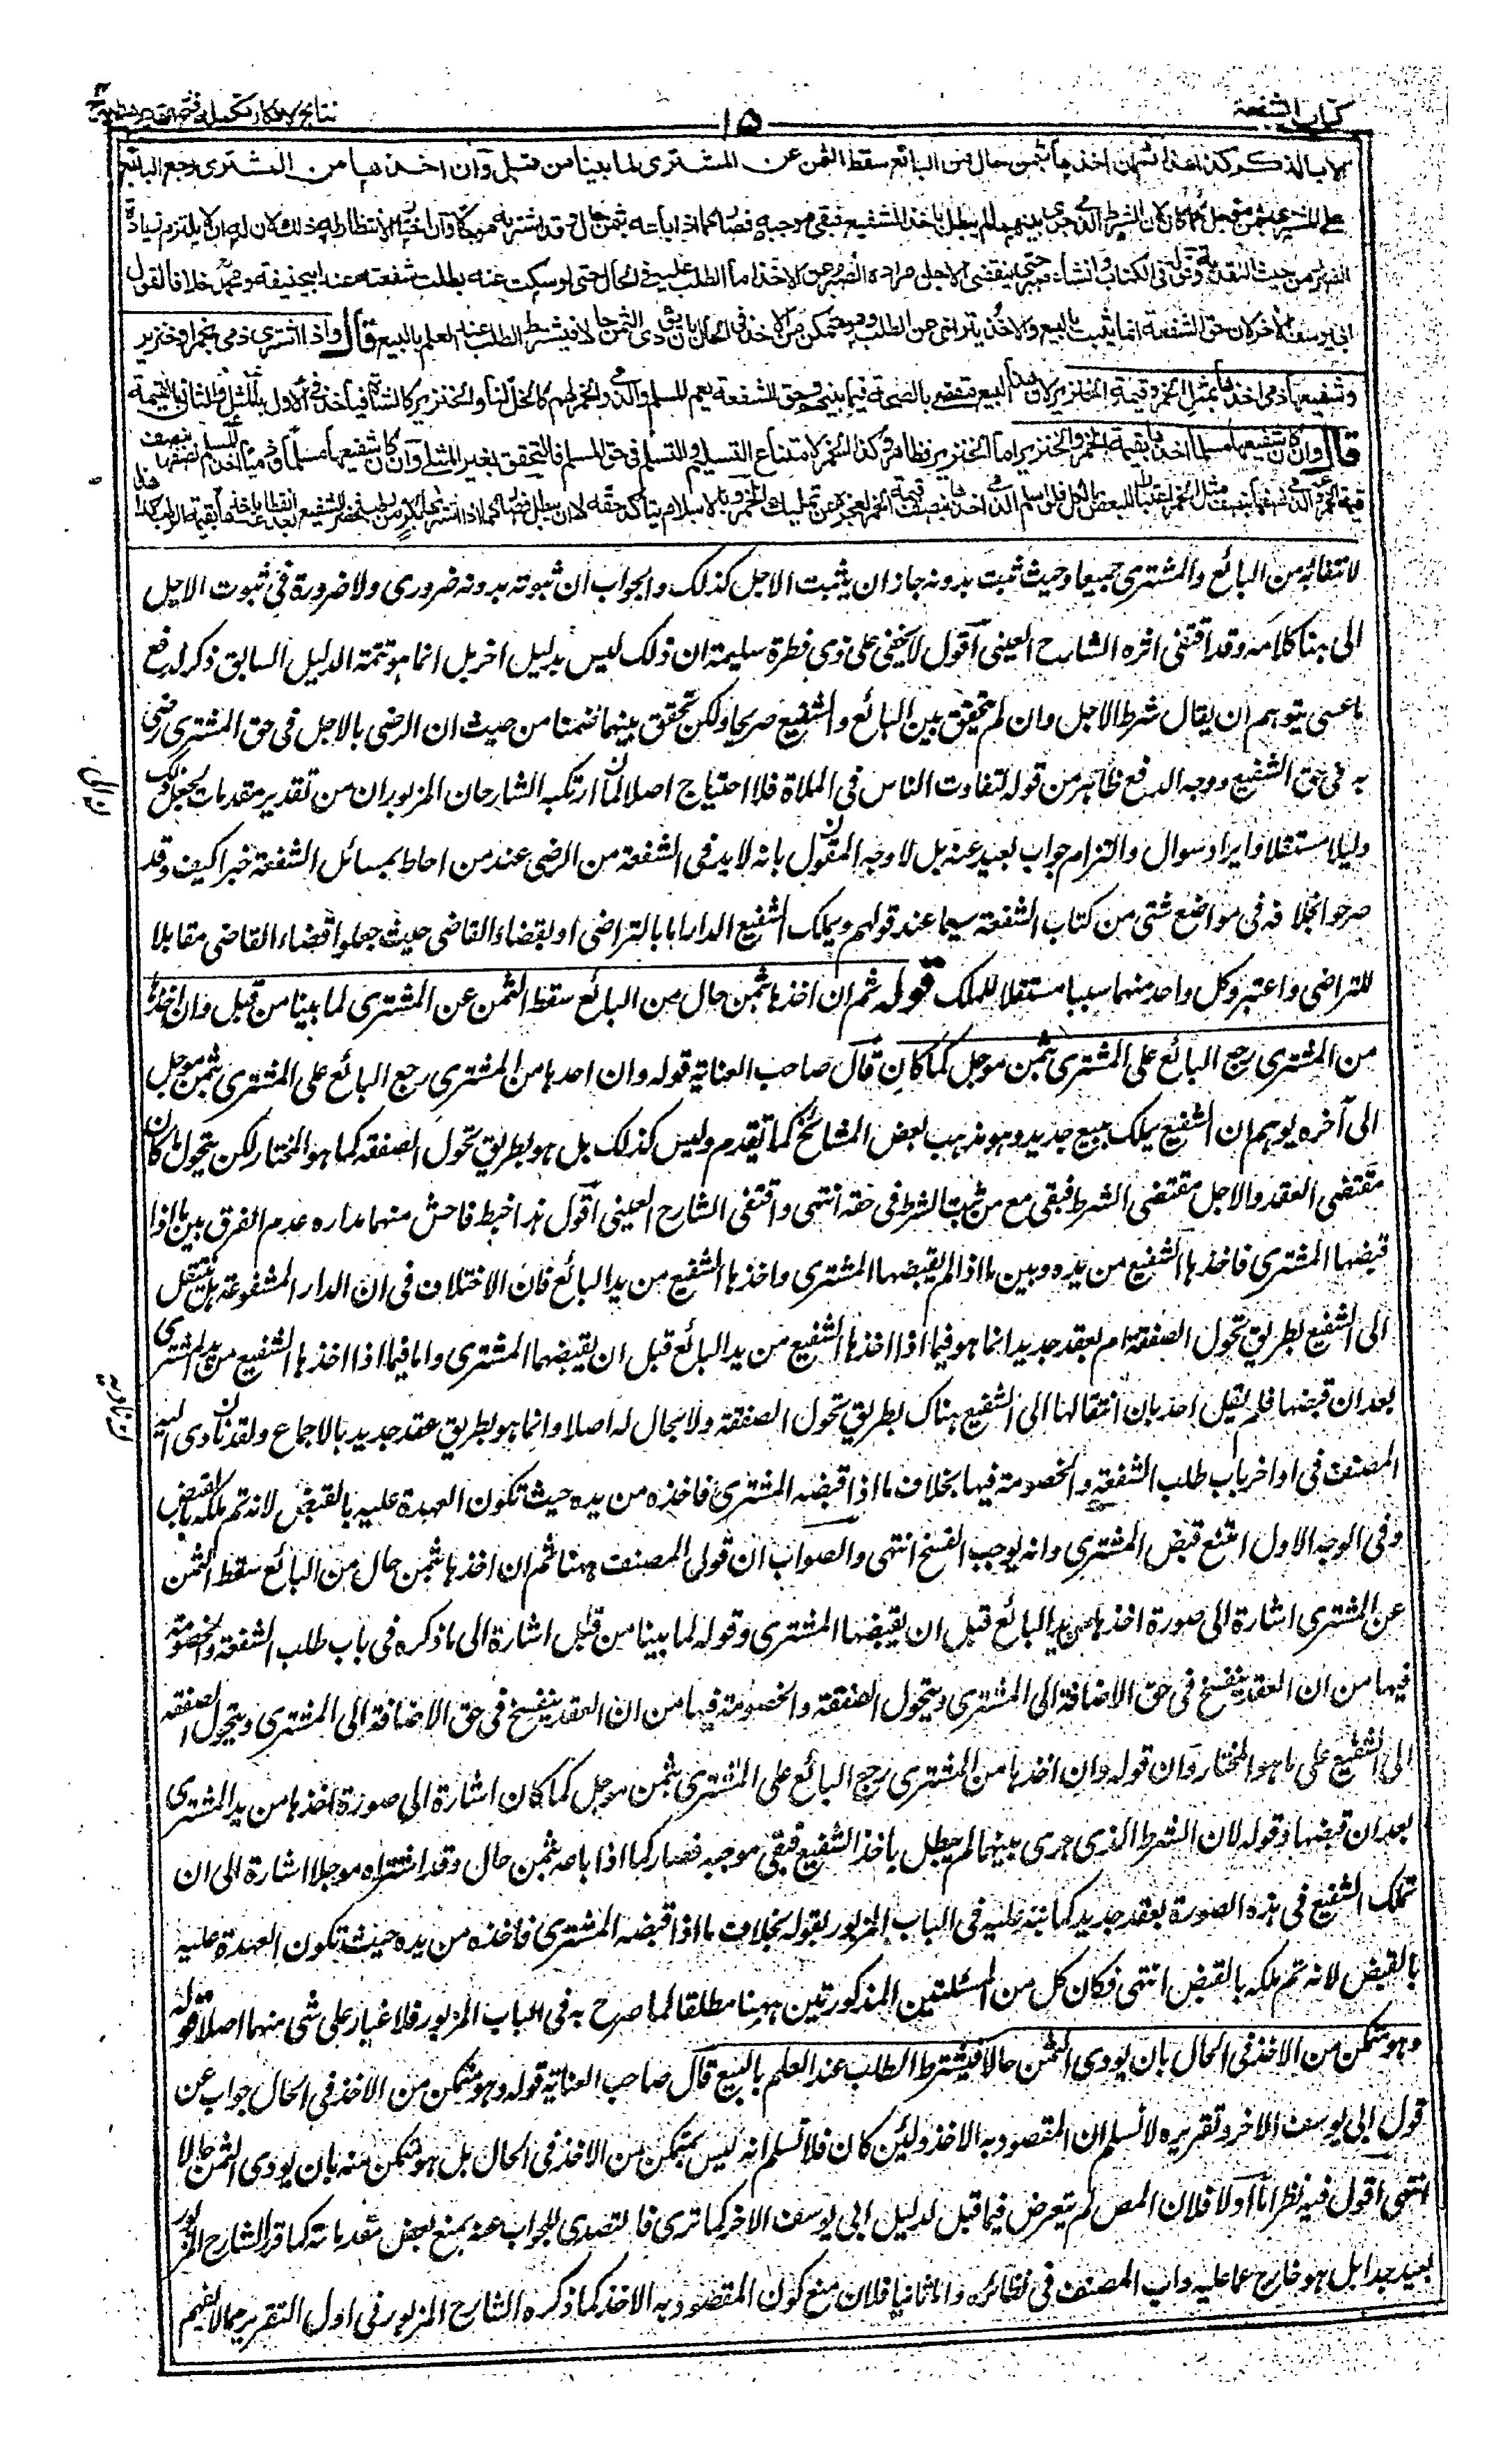 كتاب الشفعة
١٥
نتائج الافكار تكملة فتح القدير
الا بالذكر فكذا هذا ثم ان اخذها بثمن حال من البائع سقط الثمن عن المشترى لما بينا من قبل وان اخذها من المشترى رجع البائع
على المشترى بثمن مؤجل كما كان لان الشرط الذى جرى بينهما لم يبطل باخذ الشفيع فبقى موجبه فصار كما اذا باعه بثمن حال وقد اشتراه مؤجلا وان اختار الانتظار له ذلك لان له ان لا يلتزم زيادة
الضرر من حيث النقدية وقوله فى الكتاب وان شاء صبر حتى ينقضى الاجل مراده الصبر عن الاخذ اما الطلب عليه فى الحال حتى لو سكت عنه بطلت شفعته عند ابى حنيفة ومحمد خلافا لقول
ابى يوسف الاخر لان حق الشفعة انما يثبت بالبيع والاخذ يتراخى عن الطلب وهو متمكن من الاخذ فى الحال بان يؤدى الثمن حالا فيشترط الطلب عند العلم بالبيع قال واذا اشترى ذمى بخمر او خنزير
وشفيعها ذمى اخذها بمثل الخمر وقيمة الخنزير لان هذا البيع مقضى بالصحة فيما بينهم وحق الشفعة يعم المسلم والذمى والخمر لهم كالخل لنا والخنزير كالشاة فياخذ فى الاول بالمثل والثانى بالقيمة
قال وان كان شفيعها مسلما اخذها بقيمة الخمر والخنزير اما الخنزير فظاهر وكذا الخمر لامتناع التسليم والتسلم فى حق المسلم فالتحق بغير المثلى وان كان شفيعها مسلما وذميا اخذ المسلم نصفها بنصف
قيمة الخمر والذمى نصفها بنصف مثل الخمر اعتبارا للبعض بالكل فلو اسلم الذمى اخذها بنصف قيمة الخمر لعجزه عن تمليك الخمر وبالاسلام يتأكد حقه لا ان يبطل فصار كما اذا اشتراها بكر من رطب فحضر الشفيع بعد انقطاعه ياخذها بقيمة الرطب كذا هذا
لانتفائه من البائع والمشترى جميعا وحيث ثبت بدونه جاز ان يثبت الاجل كذلك والجواب ان ثبوته بدونه ضرورى ولا ضرورة فى ثبوت الاجل
الى هنا كلامه وقد اقتفى اثره الشارح العينى اقول لا يخفى على ذى فطرة سليمة ان ذلك ليس بدليل اخر بل انما هو تتمة الدليل السابق ذكر لدفع
ما عسى يتوهم ان يقال شرط الاجل وان لم يتحقق بين البائع والشفيع صريحا ولكن تحقق بينهما ضمنا من حيث ان الرضى بالاجل فى حق المشترى رضى
به فى حق الشفيع ووجه الدفع ظاهر من قوله لتفاوت الناس فى الملاة فلا احتياج اصلا لما ارتكبه الشارحان المزبوران من تقدير مقدمات يجعل ذلك
دليلا مستقلا وايراد سوال والتزام جواب بعيد عنه بل لا وجه المقول بانه لا بد فى الشفعة من الرضى عند من احاط بمسائل الشفعة خبرا كيف وقد
صرحوا بخلافه فى مواضع شتى من كتاب الشفعة سيما عند قولهم ويملك الشفيع الدار اما بالتراضى او بقضاء القاضى حيث جعلوا قضاء القاضى مقابلا
للتراضى واعتبروا كل واحد منهما سببا مستقلا للملك قوله ثم ان اخذها بثمن حال من البائع سقط الثمن عن المشترى لما بينا من قبل وان اخذها
من المشترى رجع البائع على المشترى بثمن موجل كما كان قال صاحب العناية قوله وان اخذها من المشترى رجع البائع على المشترى بثمن موجل
الى آخره يوهم ان الشفيع يملك ببيع جديد وهو مذهب بعض المشائخ كما تقدم وليس كذلك بل هو بطريق تحول الصفقة كما هو المختار لكن يتحول ما كان
مقتضى العقد والاجل مقتضى الشرط فبقى مع من ثبت الشرط فى حقه انتهى واقتفى الشارح العينى اقول هذا خبط فاحش منهما مداره عدم الفرق بين ما اذا
قبضها المشترى فاخذها الشفيع من يده وبين ما اذا لم يقبضها المشترى واخذها الشفيع من يد البائع فان الاختلاف فى ان الدار المشفوعة هل تنتقل
الى الشفيع بطريق تحول الصفقة ام بعقد جديد انما هو فيما اذا اخذها الشفيع من يد البائع قبل ان يقبضها المشترى واما فيما اذا اخذها الشفيع من يد المشترى
بعد ان قبضها فلم يقل احد بان انتقالها الى الشفيع هناك بطريق تحول الصفقة ولا مجال له اصلا وانما هو بطريق عقد جديد بالاجماع ولقد نادى اليه
المصنف فى اواخر باب طلب الشفعة والخصومة فيها بخلاف ما اذا قبضه المشترى فاخذه من يده حيث تكون العهدة عليه بالقبض لانه تم ملكه بالقبض
وفى الوجه الاول امتنع قبض المشترى وانه يوجب الفسخ انتهى والصواب ان قول المصنف ههنا ثم ان اخذها بثمن حال من البائع سقط الثمن
عن المشترى اشارة الى صورة اخذها من يد البائع قبل ان يقبضها المشترى وقوله لما بينا من قبل اشارة الى ما ذكره فى باب طلب الشفعة والخصومة
فيها من ان العقد ينفسخ فى حق الاضافة الى المشترى ويتحول الصفقة والخصومة فيها من ان العقد ينفسخ فى حق الاضافة الى المشترى ويتحول الصفقة
الى الشفيع على ما هو المختار وان قوله وان اخذها من المشترى رجع البائع على المشترى بثمن موجل كما كان اشارة الى صورة اخذها من يد المشترى
بعد ان قبضها وقوله لان الشرط الذى جرى بينهما لم يبطل باخذ الشفيع فبقى موجبه فصار كما اذا باعه بثمن حال وقد اشتراه موجلا اشارة الى ان
تملك الشفيع فى هذه الصورة بعقد جديد كما نبه عليه فى الباب المزبور بقوله بخلاف ما اذا قبضه المشترى فاخذه من يده حيث تكون العهدة عليه
بالقبض لانه تم ملكه بالقبض انتهى فكان كل من المسئلتين المذكورتين ههنا مطلقا لما صرح به فى الباب المزبور فلا غبار على شى منهما اصلا قوله
وهو متمكن من الاخذ فى الحال بان يودى الثمن حالا فيشترط الطلب عند العلم بالبيع قال صاحب العناية قوله وهو متمكن من الاخذ فى الحال جواب عن
قول ابى يوسف الاخر وتقريره لا نسلم ان المقصود به الاخذ ولئن كان فلا نسلم انه ليس بمتمكن من الاخذ فى الحال بل هو متمكن منه بان يودى الثمن حالا
انتهى اقول فيه نظر اما اولا فلان المص لم يتعرض فيما قبل لدليل ابى يوسف الاخر كما ترى فالتصدى للجواب عنه بمنع بعض مقدماته كما قرر الشارح المزبور
بعيد جدا بل هو خارج عما عليه داب المصنف فى نظائره واما ثانيا فلان منع كون المقصود به الاخذ كما ذكره الشارح المزبور فى اول التقرير مما لا يفهم